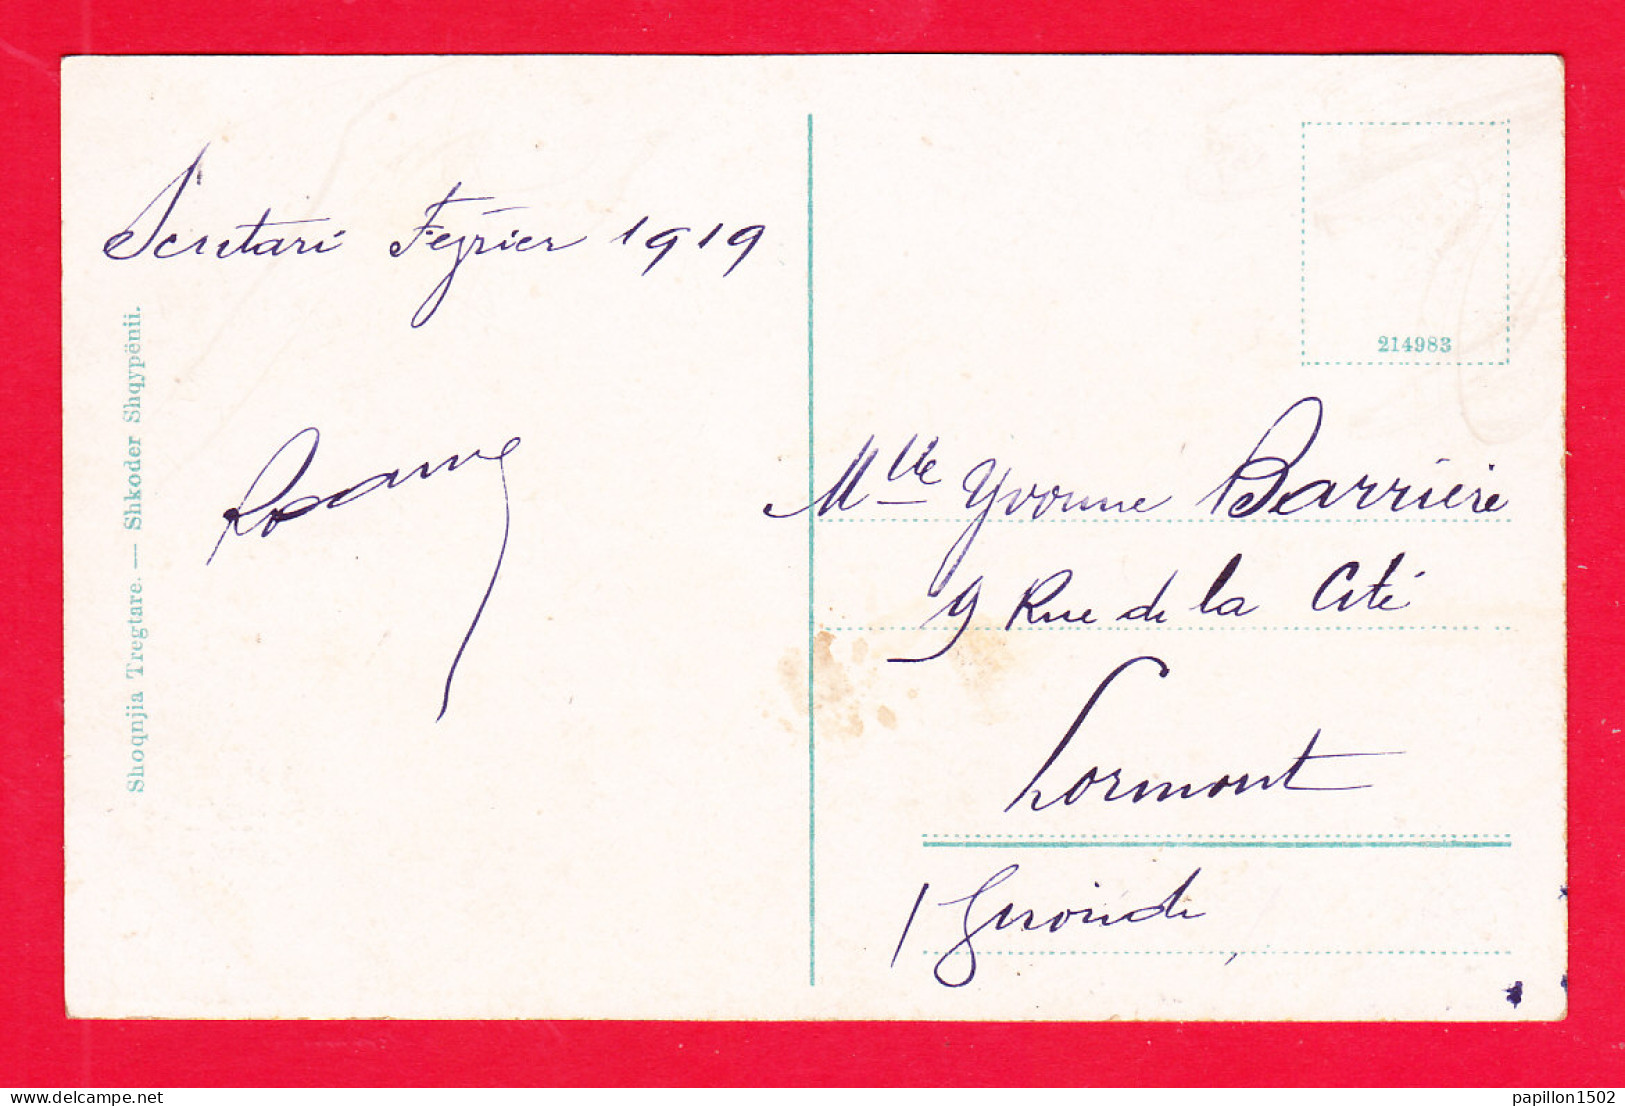 Scutari Février 1919
Shoqnjia Tregtare. — Shkoder Shqypënii.
214983
Mlle Yvonne Barrière
9 Rue de la Cité
Lormont
Gironde
delcampe.net
papillon1502